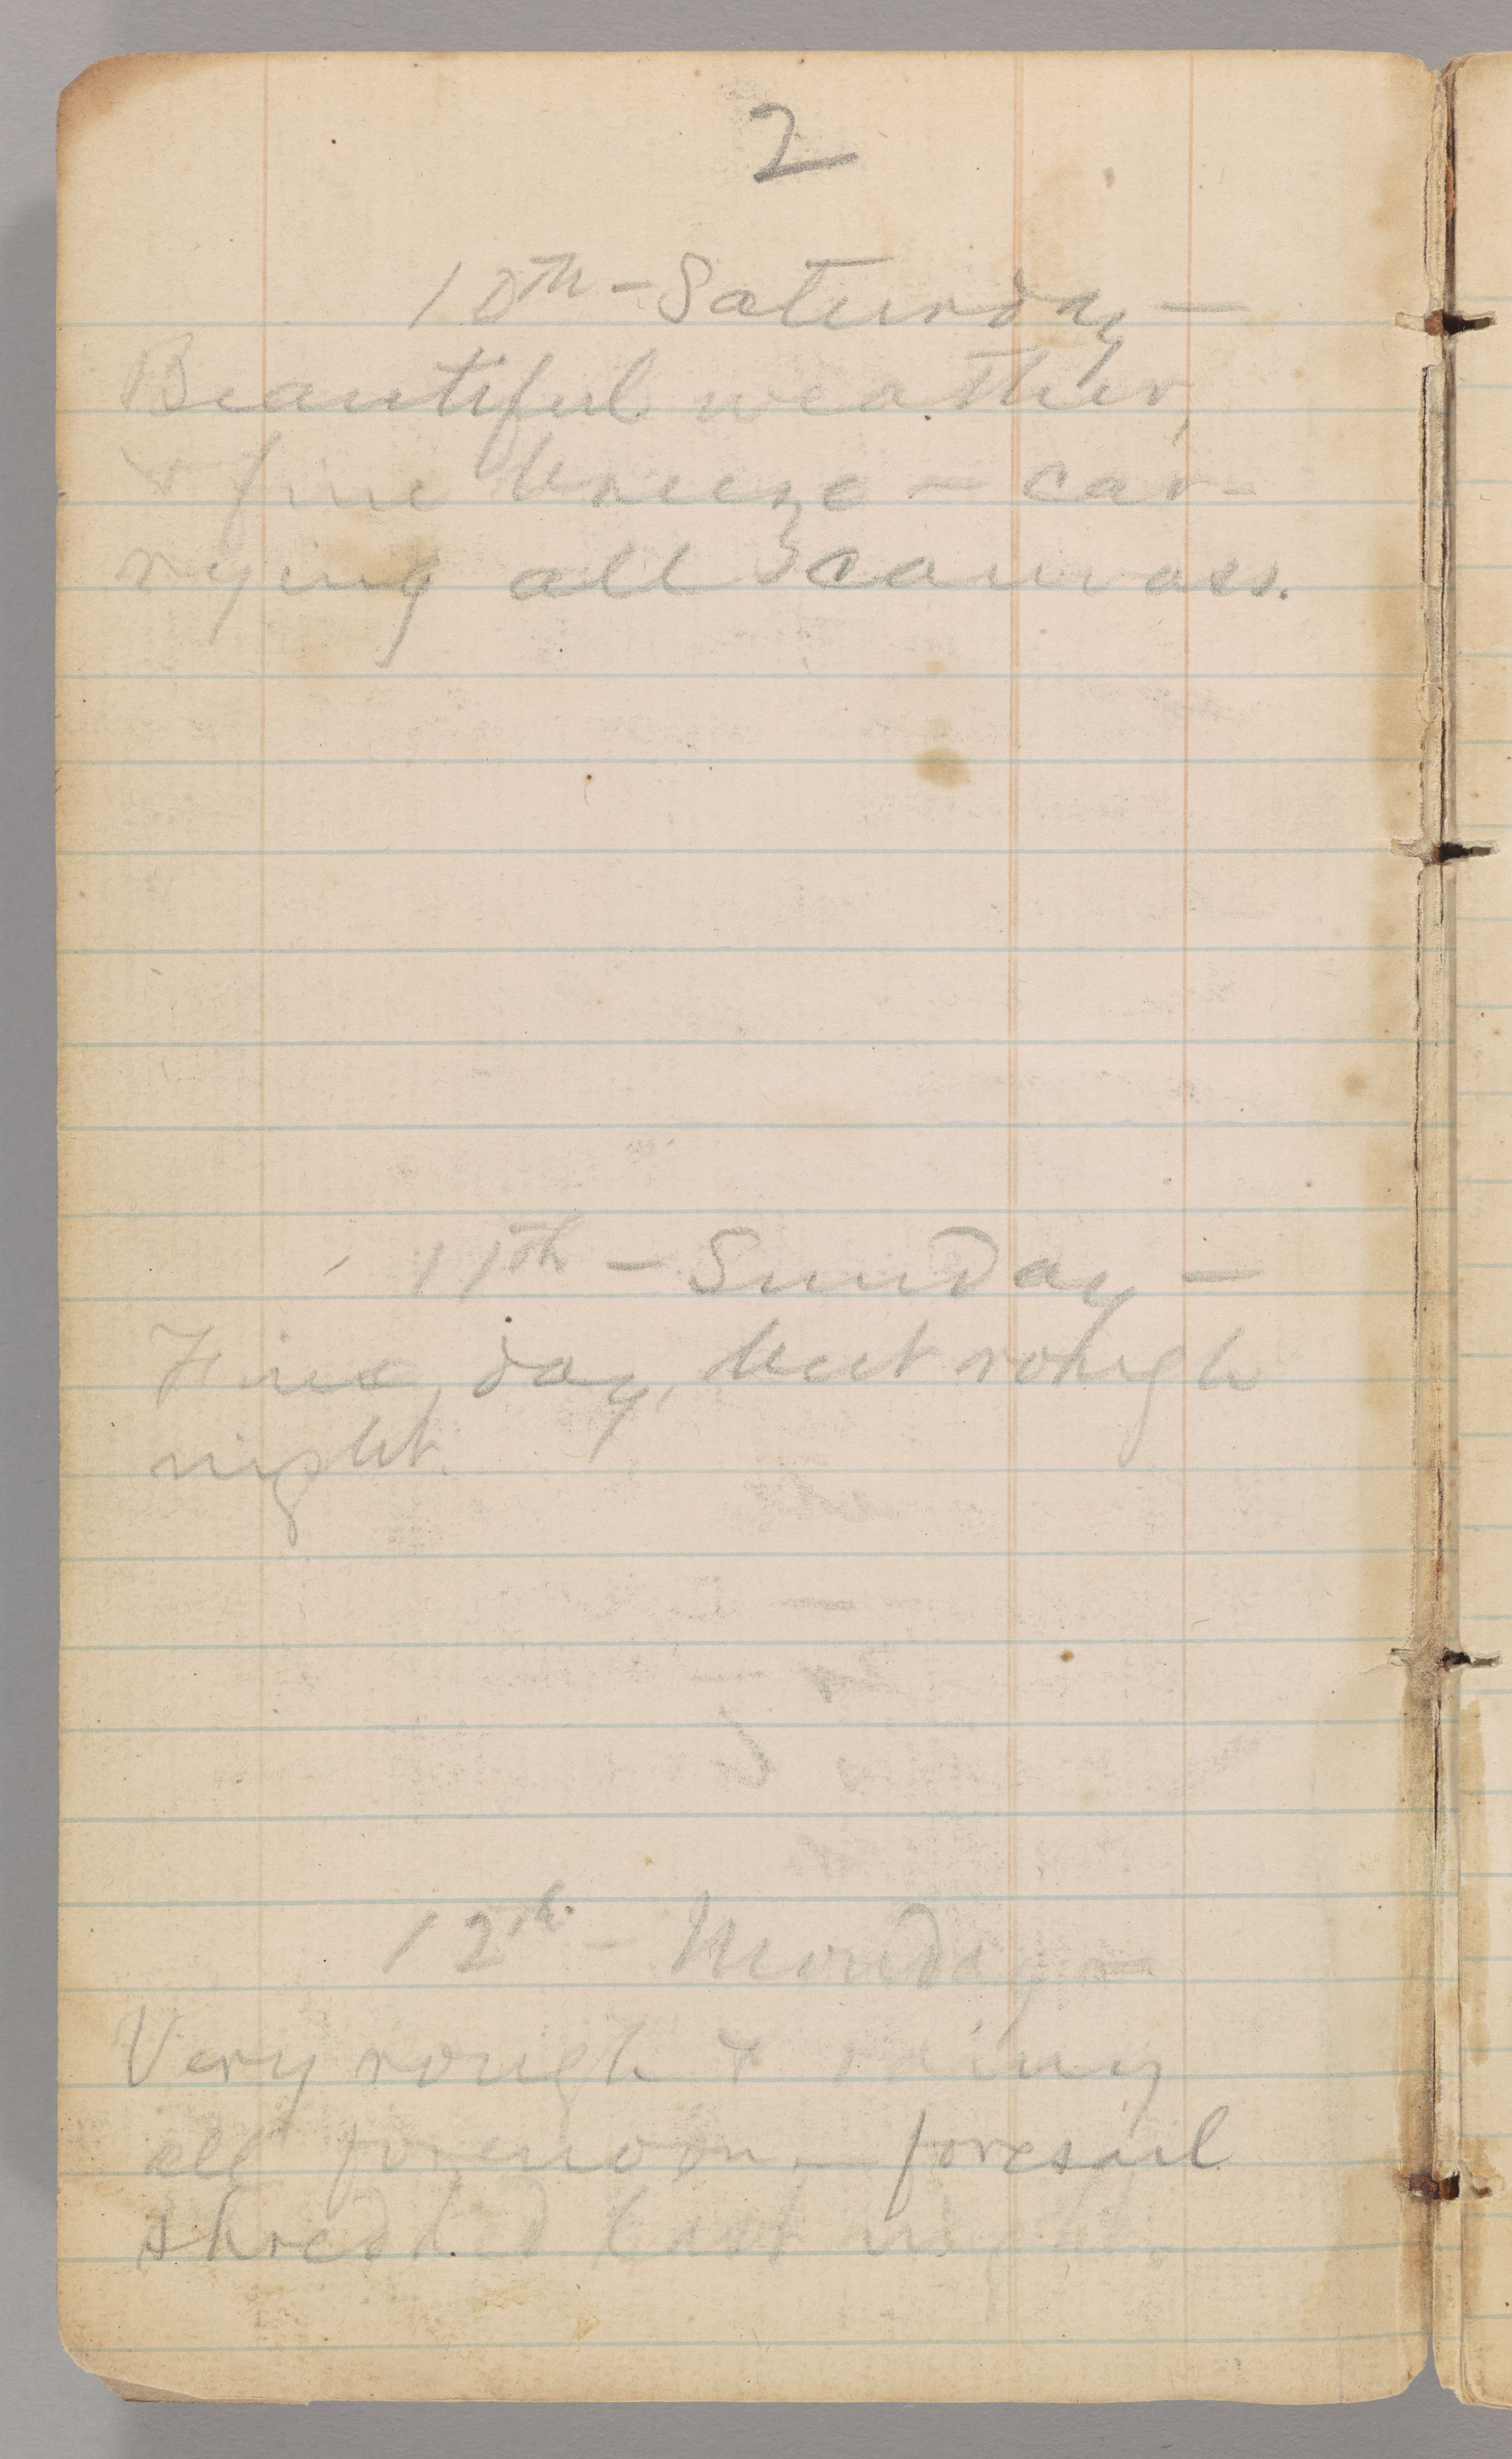 2
10th - Saturday -
Beautiful weather,
& fine breeze - car-
rying all canvass.
11th - Sunday -
Fine day, but rough
night.
12th - Monday -
Very rough & rainy
all forenoon - foresail
shredded last night.